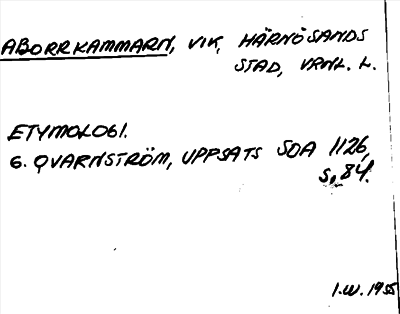 ABORRKAMMARN, VIK, HÄRNÖSANDS
STAD, VRNL. L.
ETYMOLOGI.
G. QVARNSTRÖM, UPPSATS SOA 1126,
S. 84.
I.W. 1955